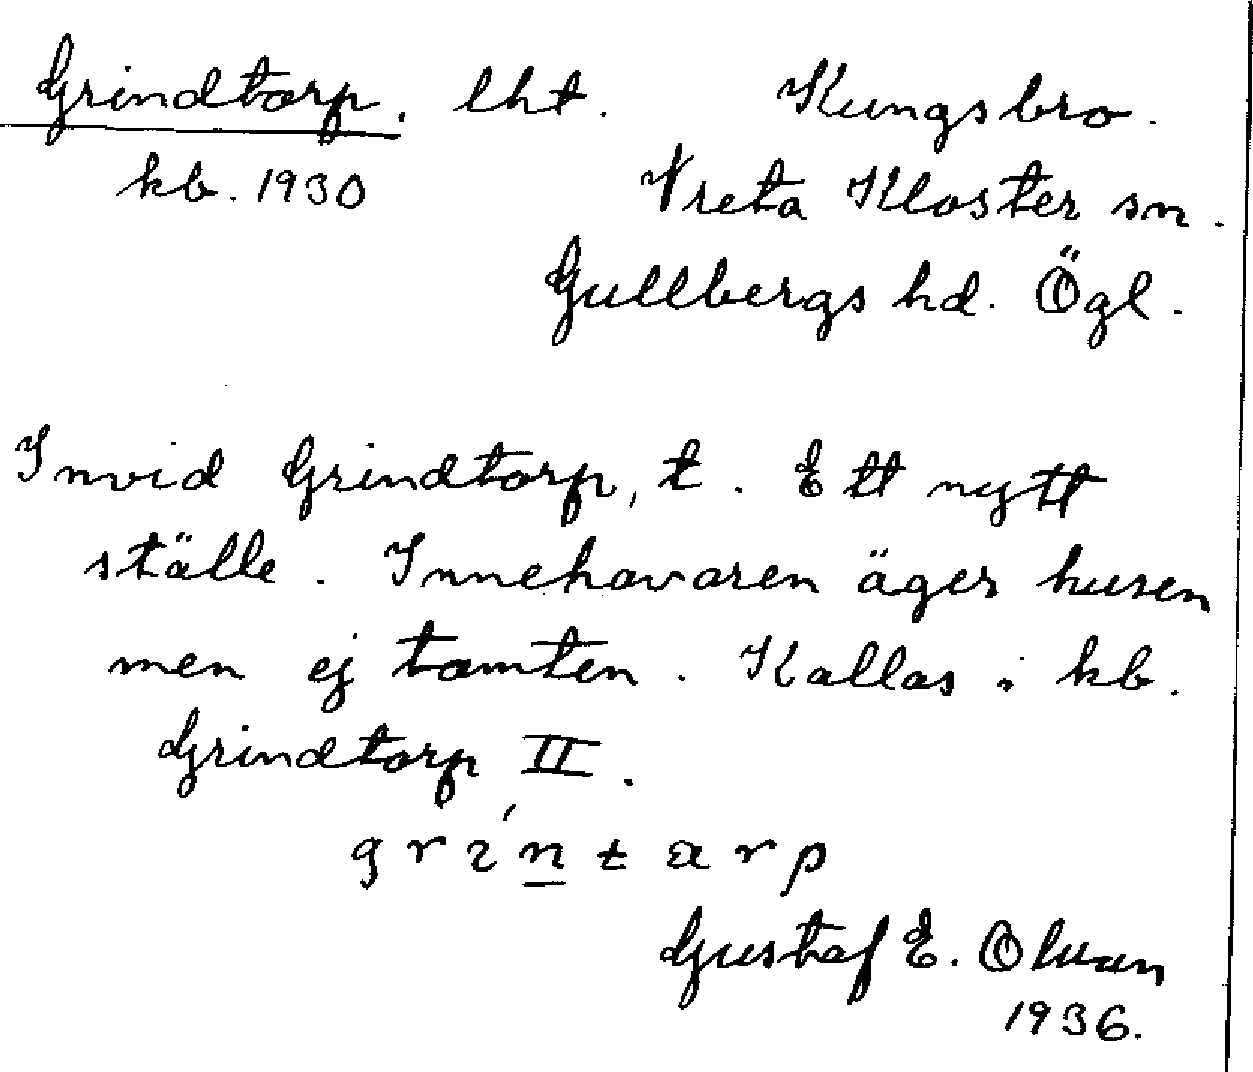 Grindtorp. lht. Kungsbro.
kb. 1930 Vreta Kloster sn.
Gullbergs hd. Ögl.
Invid Grindtorp, t. Ett nytt
ställe. Innehavaren äger husen
men ej tomten. Kallas i kb.
Grindtorp II.
griń̲tarp
Gustaf E.
1936.